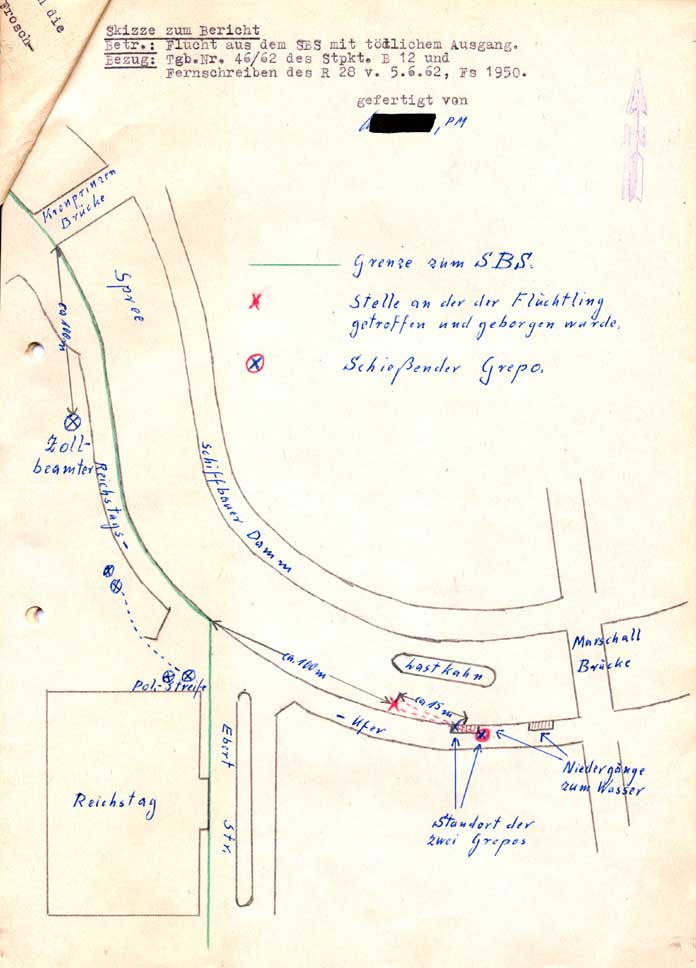 die
Frosch-
Skizze zum Bericht
Betr.: Flucht aus dem SBS mit tödlichem Ausgang.
Bezug: Tgb.Nr. 46/62 des Stpkt. B 12 und
Fernschreiben des R 28 v. 5.6.62, Fs 1950.
gefertigt von
, PM
N
Kronprinzen
Brücke
Spree
Grenze zum SBS.
Stelle an der der Flüchtling
getroffen und geborgen wurde.
Schießender Grepo.
ca 100m
Zoll-
beamter
Reichstags-
Schiffbauer Damm
Marschall
Brücke
ca. 100m
Lastkahn
ca 15m
Pol.-Streife
- Ufer
Ebert
Str.
Reichstag
Niedergänge
zum Wasser
Standort der
zwei Grepos